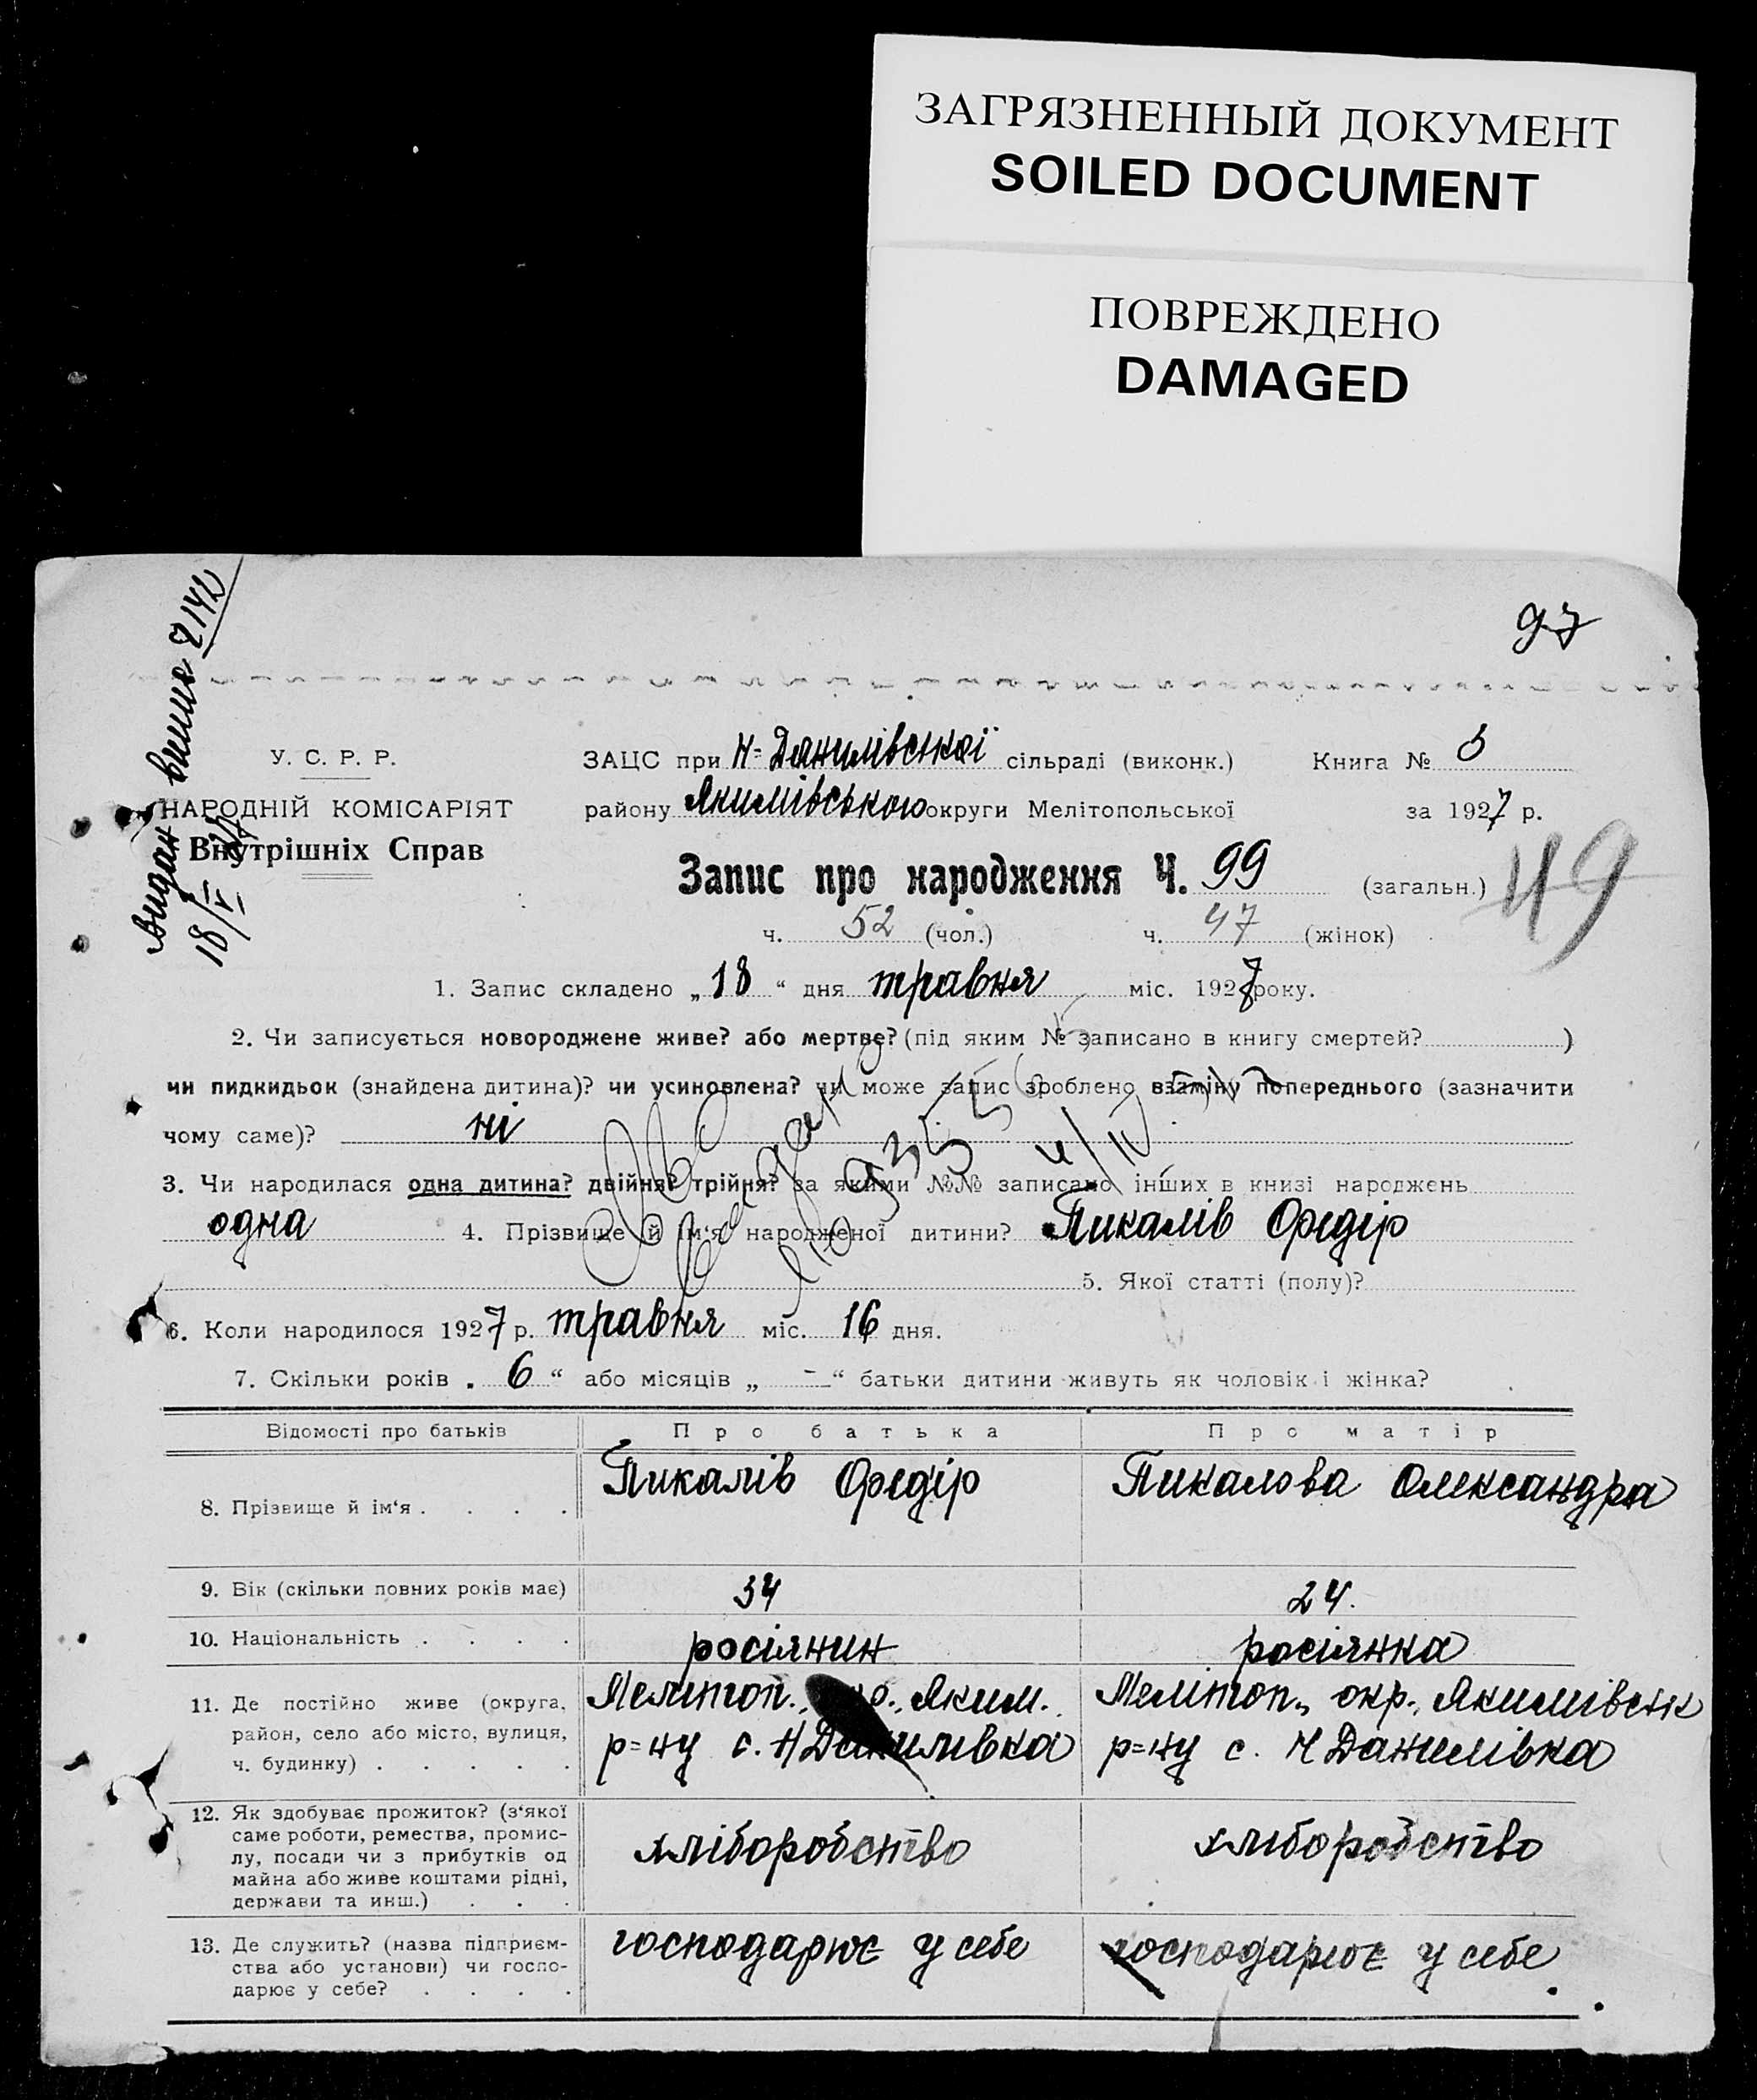 ЗАГРЯЗНЕННЫЙ ДОКУМЕНТ
SOILED DOCUMENT
ПОВРЕЖДЕНО
DAMAGED
97
У. С. Р. Р.
НАРОДНІЙ КОМІСАРІЯТ
Внутрішніх Справ
ЗАЦС при Н-Данилівської сільраді (виконк.) Книга №
району Якимівського округи Мелітопольської за 1927 р.
Запис про народження Ч. 99 (загальн.) 49
ч. 52 (чол.) ч. 47 (жінок)
1. Запис складено „18“ дня травня міс. 1927 року.
2. Чи записується новороджене живе? або мертве? (під яким № записано в книгу смертей? )
чи пидкидьок (знайдена дитина)? чи усиновлена? чи може запис зроблено взаміну попереднього (зазначити
чому саме)? ні
3. Чи народилася одна дитина? двійня? трійня? за якими №№ записано інших в книзі народжень
одна 4. Прізвище й ім‘я народженої дитини? Пикалів Федір
5. Якої статті (полу)?
6. Коли народилося 1927 р. травня міс. 16 дня.
7. Скільки років „ 6 “ або місяців „ — “ батьки дитини живуть як чоловік і жінка?
Відомості про батьків Про батька Про матір
8. Прізвище й ім‘я . . . . Пикалів Федір Пикалова Олександра
9. Вік (скільки повних років має) 34 24.
10. Національність . . . . росіянин росіянка
11. Де постійно живе (округа, Мелітоп., Яким. Мелітоп., окр., Якимівськ
район, село або місто, вулиця, р=ну с. Н Данилівка р=ну с. Н Данилівка
ч. будинку) . . . . .
12. Як здобуває прожиток? (з‘якої
саме роботи, ремества, промис-
лу, посади чи з прибутків од хліборобство хліборобство
майна або живе коштами рідні,
держави та инш.) . . .
13. Де служить? (назва підприєм- господарює у себе господарює у себе
ства або установи) чи госпо-
дарює у себе? . . . .